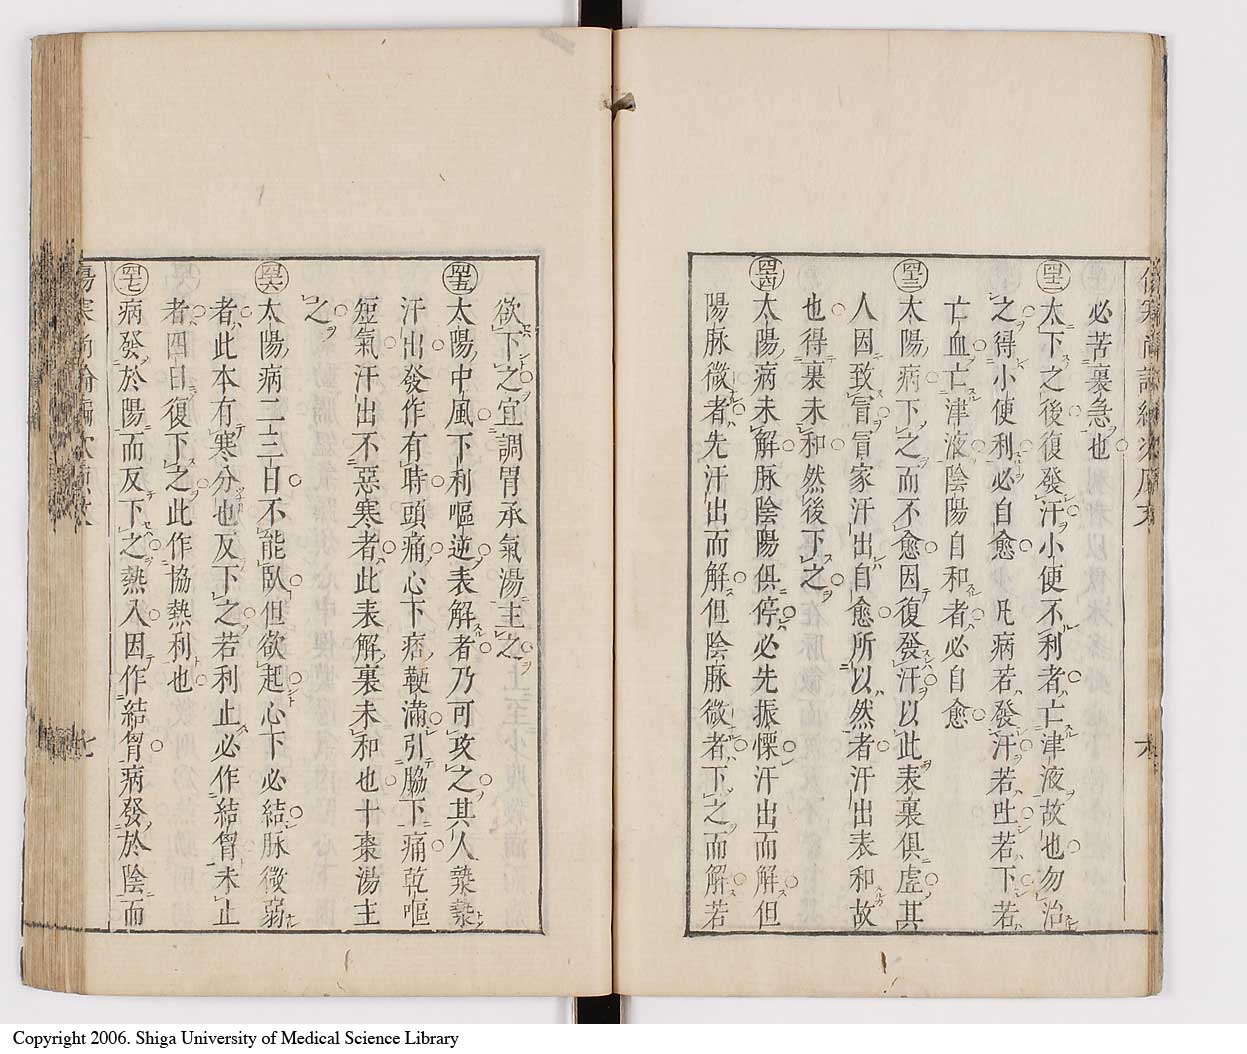 傷寒尚論編次原文
六
必苦裏急也
四十二
太下之後復發汗小便不利者亡津液故也勿治
之得小便利必自愈 凡病若發汗若吐若下若
亡血亡津液陰陽自和者必自愈
四十三
太陽病下之而不愈因復發汗以此表裏俱虛其
人因致冒冒家汗出自愈所以然者汗出表和故
也得裏未和然後下之
四十四
太陽病未解脉陰陽俱停必先振慄汗出而解但
陽脉微者先汗出而解但陰脉微者下之而解若
欲下之宜調胃承氣湯主之
四十五
太陽中風下利嘔逆表解者乃可攻之其人漐漐
汗出發作有時頭痛心下痞鞕滿引脇下痛乾嘔
短氣汗出不惡寒者此表解裏未和也十棗湯主
之
四十六
太陽病二三日不能臥但欲起心下必結脉微弱
者此本有寒分也反下之若利止必作結胷未止
者四日復下之此作協熱利也
四十七
病發於陽而反下之熱入因作結胷病發於陰而
傷寒尚論編次原文
七
Copyright 2006. Shiga University of Medical Science Library